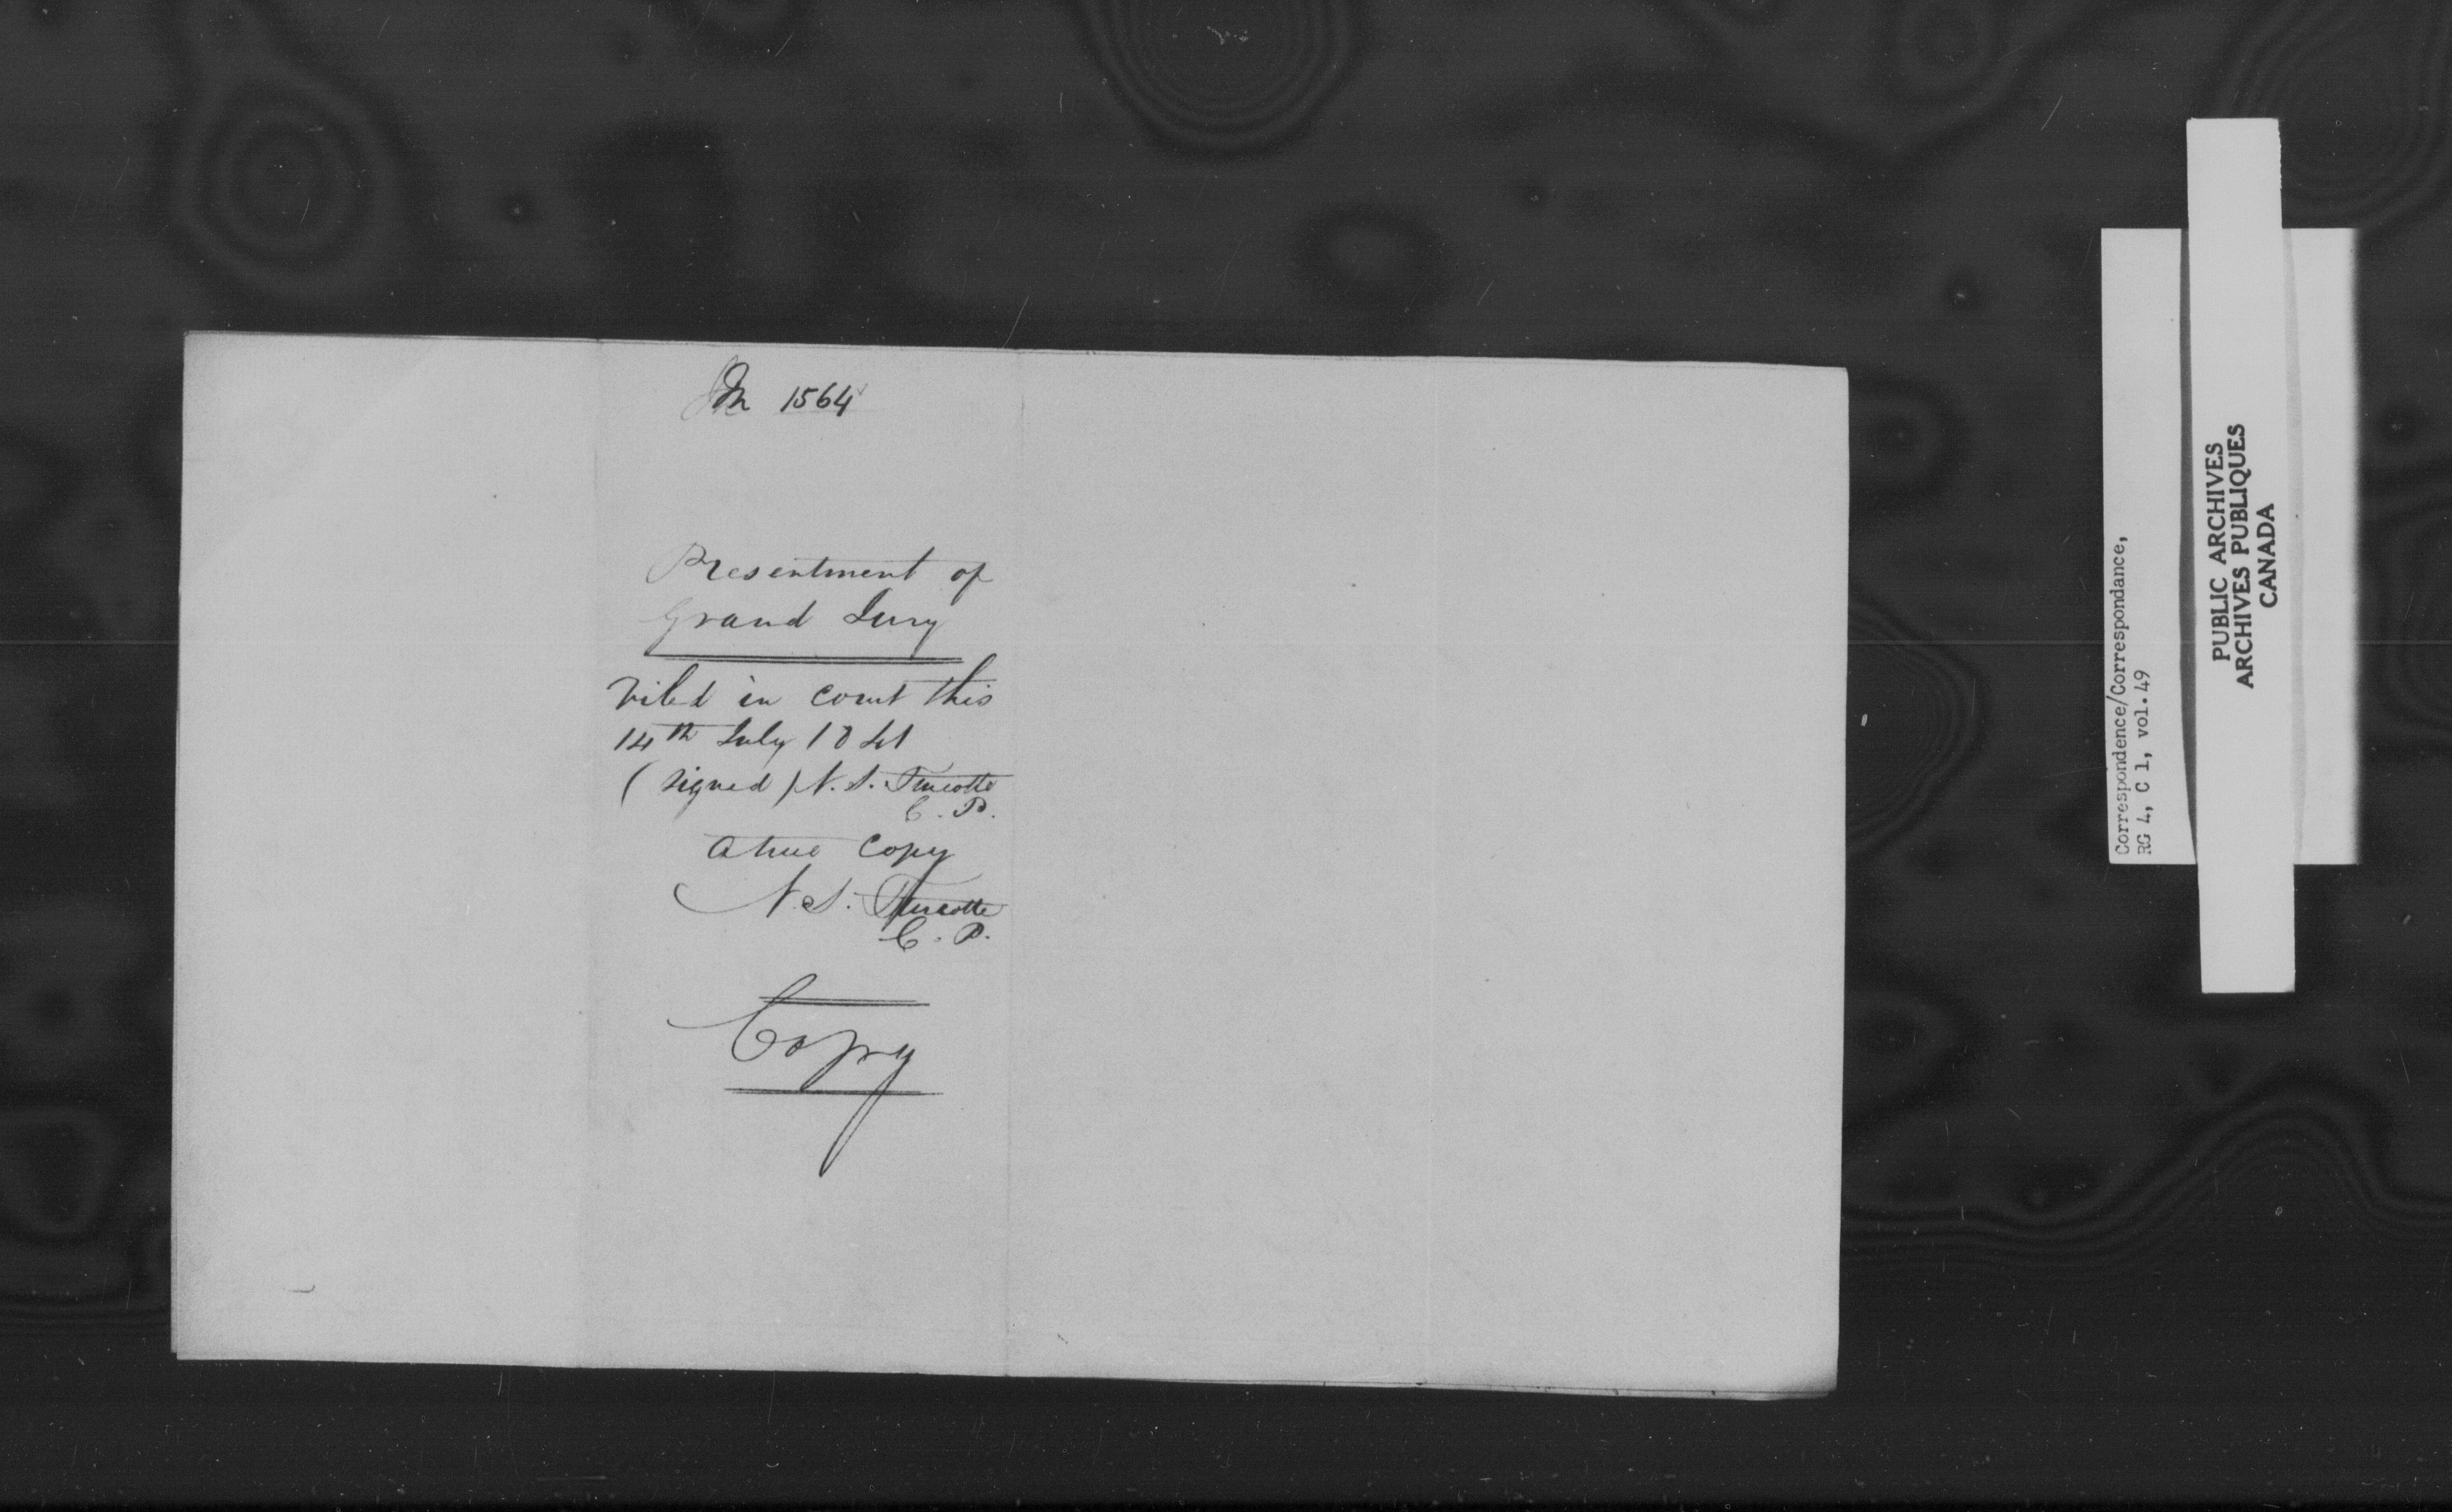 In 1564
Presentment of
Grand Jury
Filed in court this
14th July 1841
(signed) N. S. Turcotte
C. P.
A true copy
N. S. Turcotte
C. P.
Copy
Correspondence/Correspondance,
RG 4, C 1, vol. 49
PUBLIC ARCHIVES
ARCHIVES PUBLIQUES
CANADA